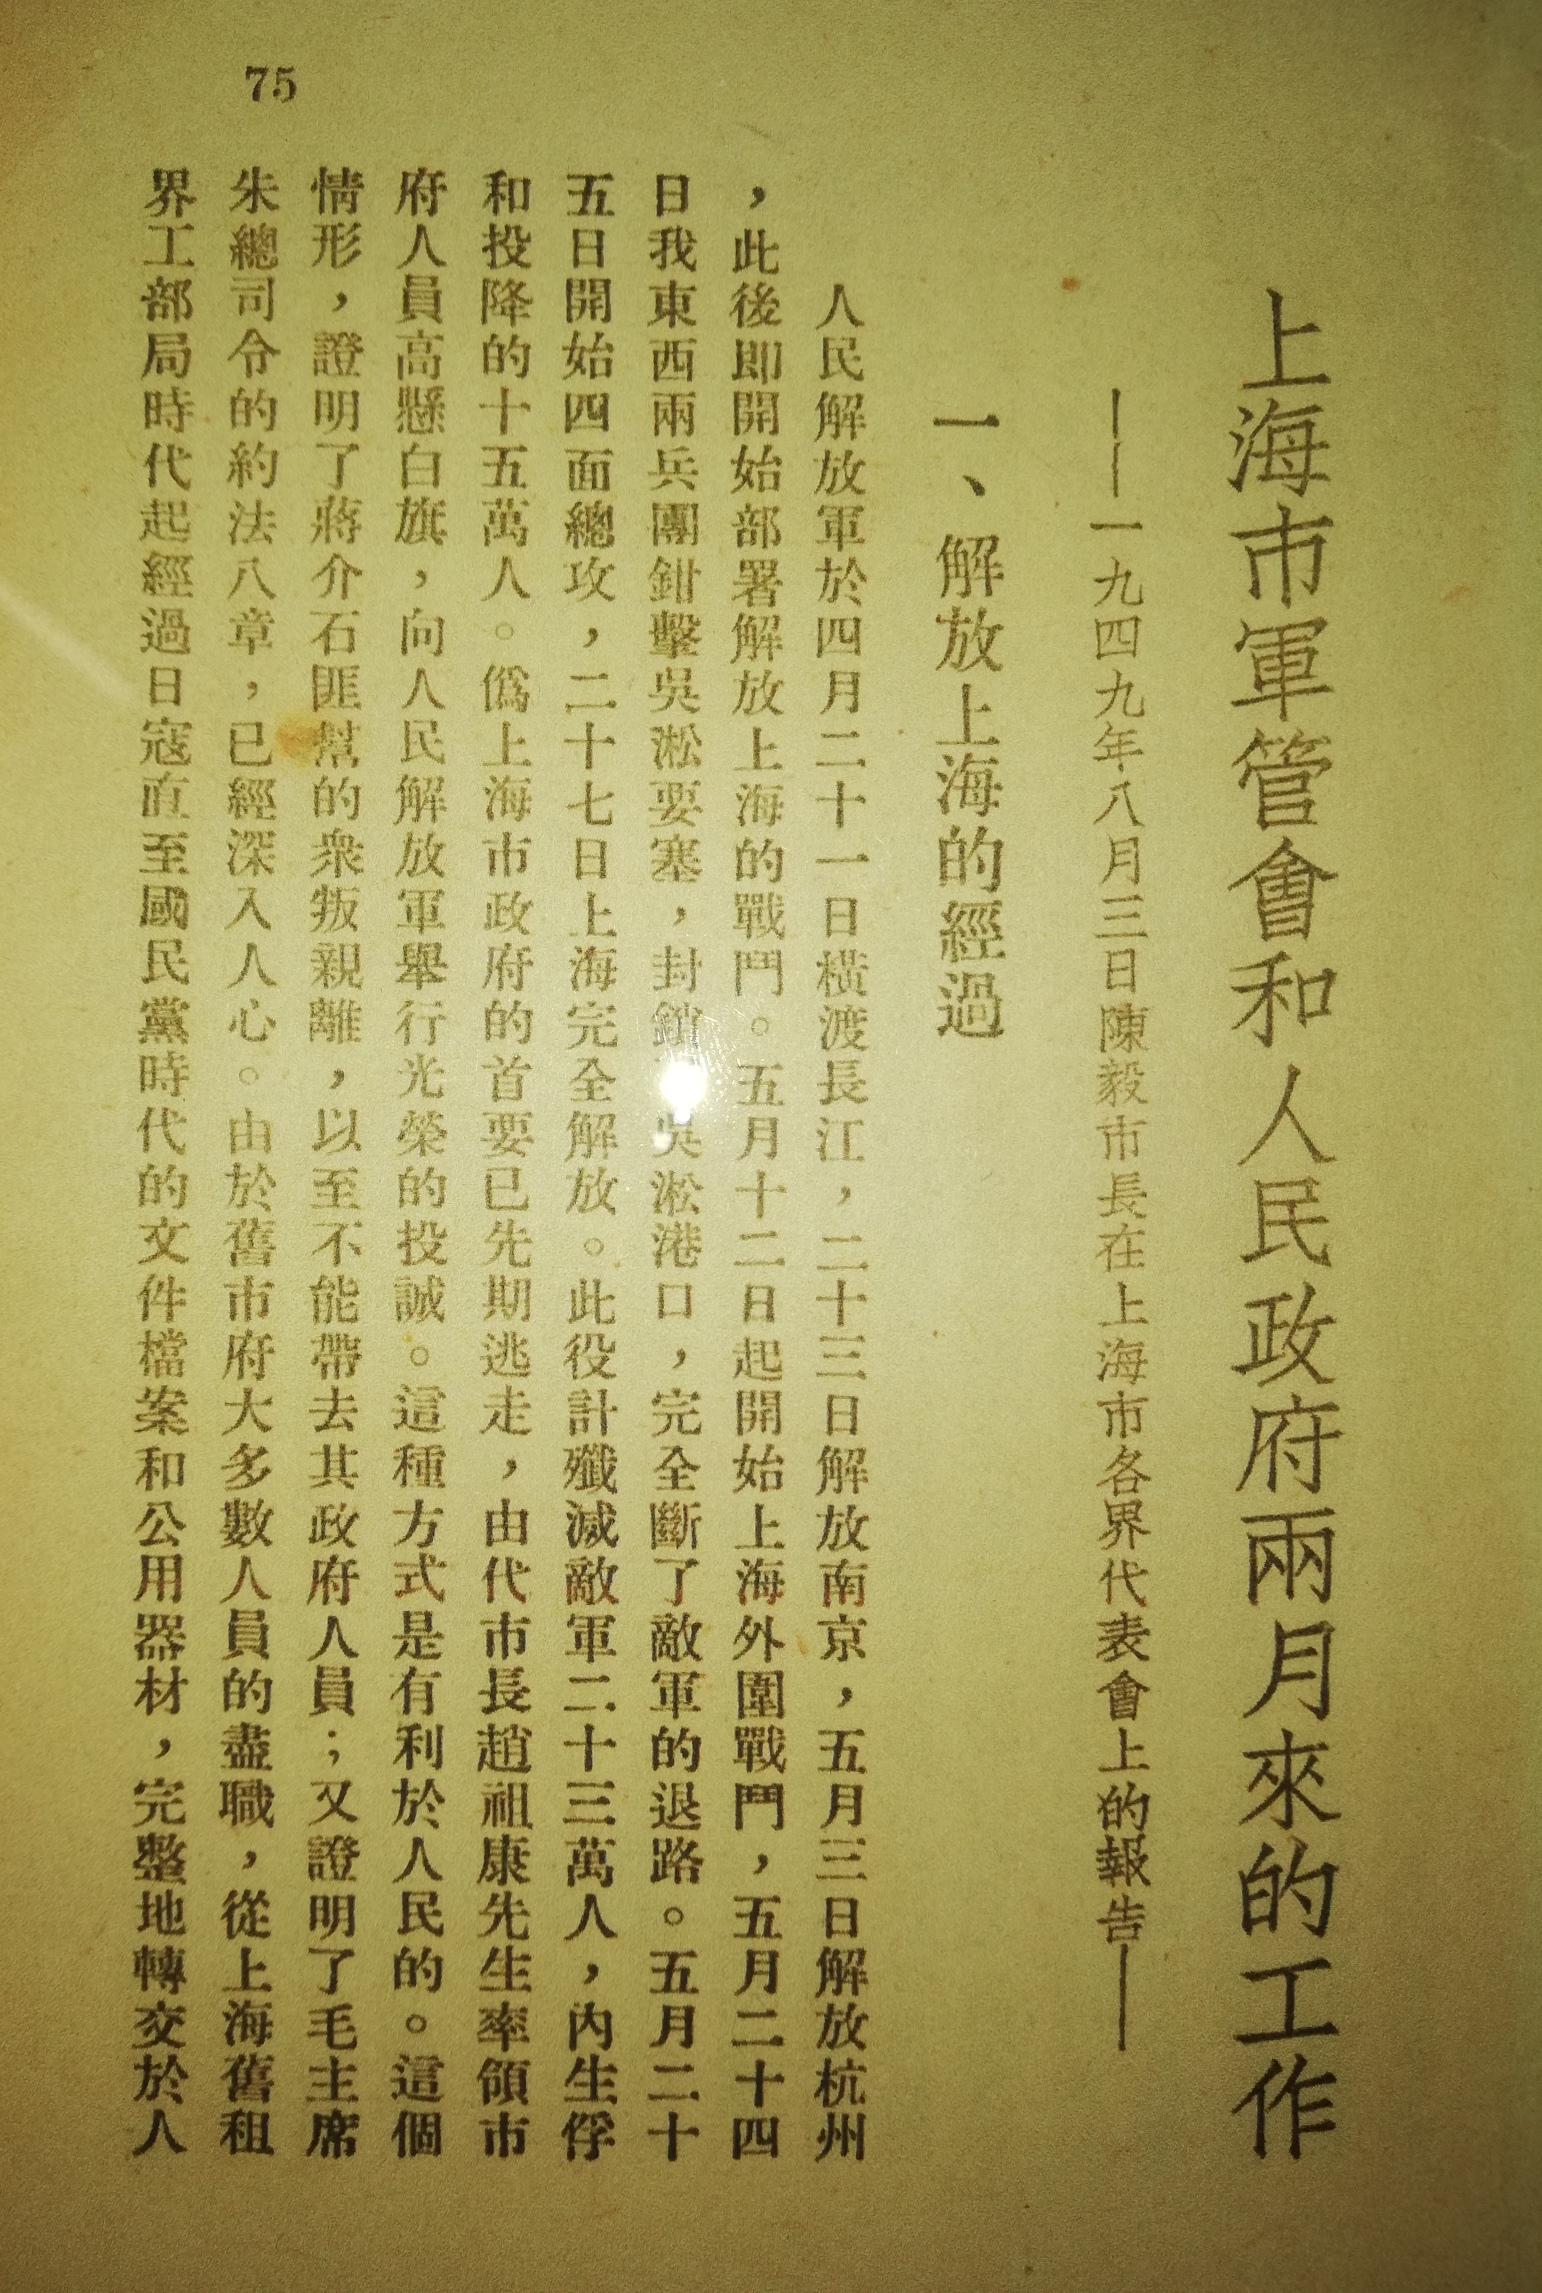 上海市軍管會和人民政府兩月來的工作
——一九四九年八月三日陳毅市長在上海市各界代表會上的報告——
一、解放上海的經過
人民解放軍於四月二十一日橫渡長江，二十三日解放南京，五月三日解放杭州
，此後即開始部署解放上海的戰鬥。五月十二日起開始上海外圍戰鬥，五月二十四
日我東西兩兵團鉗擊吳淞要塞，封鎖吳淞港口，完全斷了敵軍的退路。五月二十
五日開始四面總攻，二十七日上海完全解放。此役計殲滅敵軍二十三萬人，內生俘
和投降的十五萬人。僞上海市政府的首要已先期逃走，由代市長趙祖康先生率領市
府人員高懸白旗，向人民解放軍舉行光榮的投誠。這種方式是有利於人民的。這個
情形，證明了蔣介石匪幫的衆叛親離，以至不能帶去其政府人員；又證明了毛主席
朱總司令的約法八章，已經深入人心。由於舊市府大多數人員的盡職，從上海舊租
界工部局時代起經過日寇直至國民黨時代的文件檔案和公用器材，完整地轉交於人
75